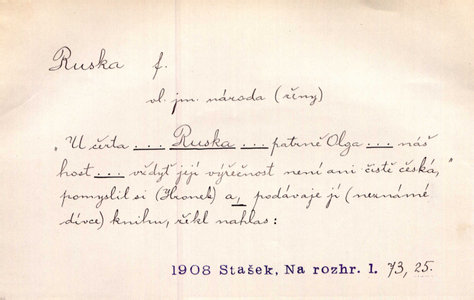 Ruska f.
vl. jm. národa (ženy)
„U čerta ... Ruska ... patrně Olga ... náš
host ... vždyť její výřečnost není ani čistě česká,"
pomyslil si (Hronek) a, podávaje jí (neznámé
dívce) knihu, řekl nahlas:
1908 Stašek, Na rozhr. 1. 73, 25.